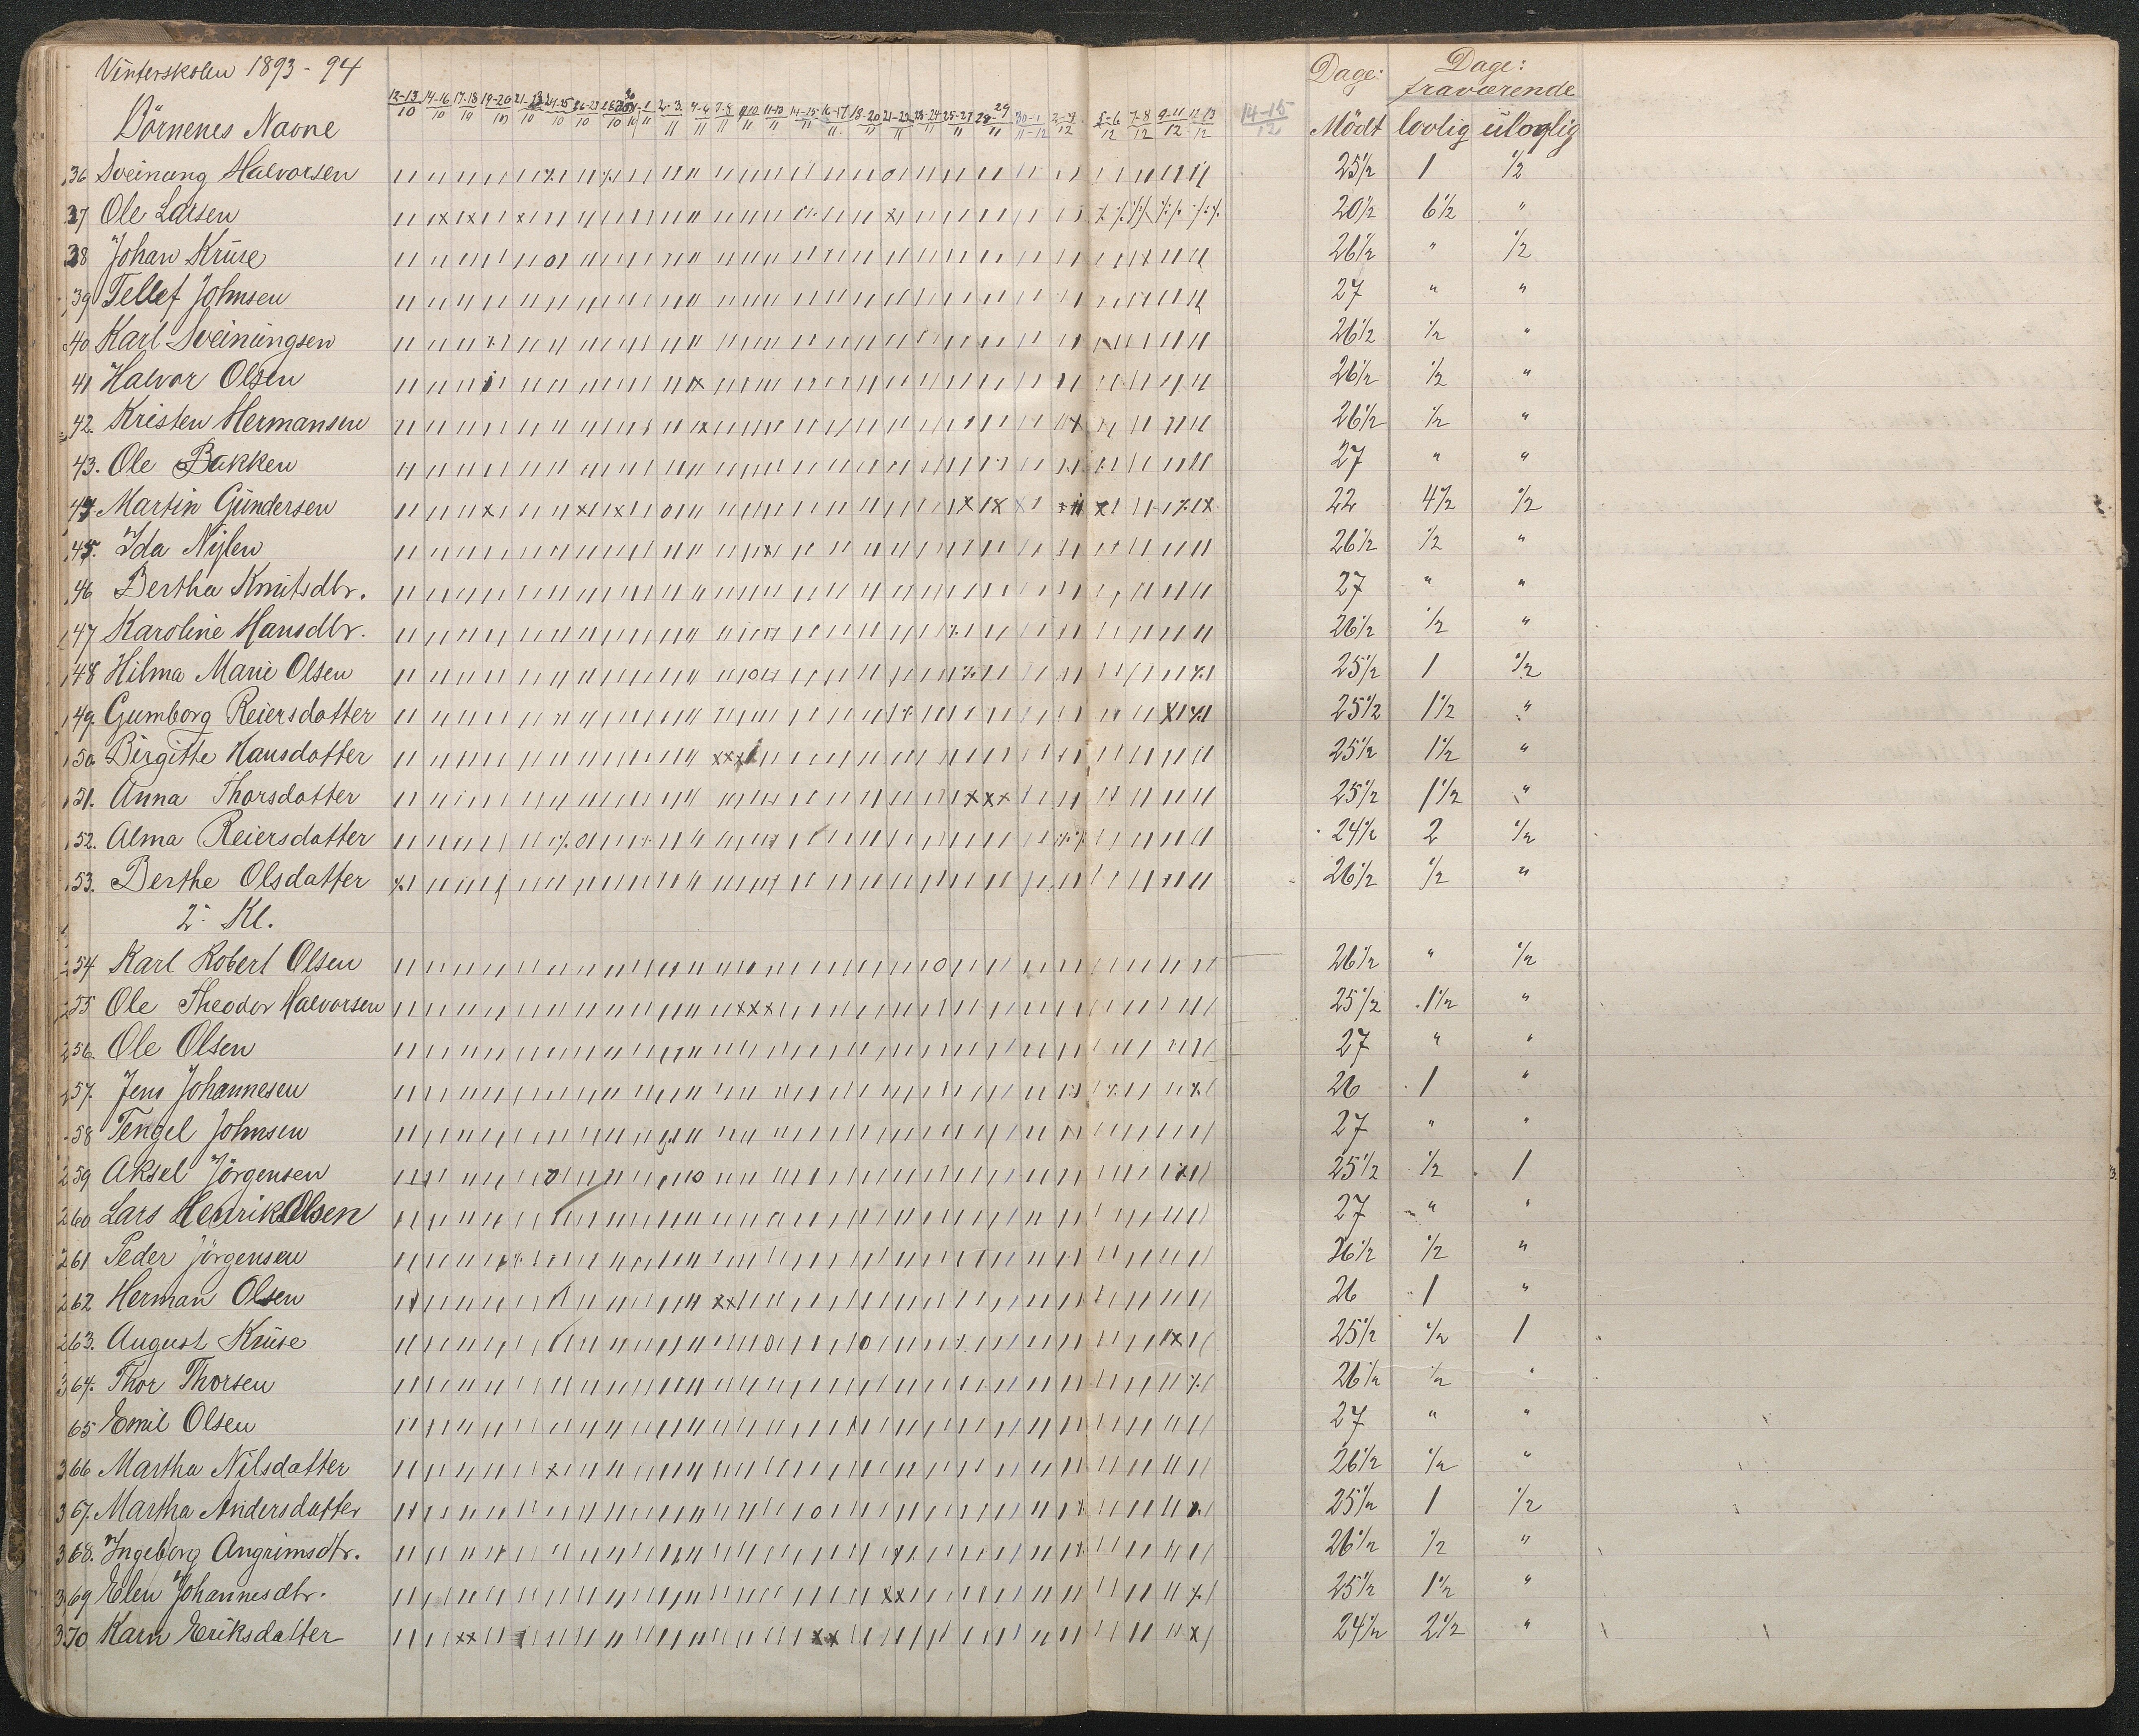 Vinterskolen 1893-94
Börnenes Navne 12-13/10 14-16/10 17-18/10 19-20/10 2-3/11 4-6/11 7-8/11 11-13/11 14-15/11 16-17/11 18-20/11 21-22/11 23-24/11 25-27/11 28-29/11 30-1/11-12 2-4/12 5-6/12 7-8/12 9-11/12 12-13/12 14-15/12 Dage: Mödt Dage: fraværende lovlig ulovlig
36 Sveinung Halvorsen 25½ 1 ½
37 Ole Larsen 20½ 6½ "
38 Johan Kruse 26½ " ½
39 Tellef Johnsen 27 " "
40 Karl Sveinungsen 26½ ½ "
41 Halvor Olsen 26½ ½ "
42. Kristen Hermansen 26½ ½ "
43. Ole Bakken 27 " "
44 Martin Gundersen 22 4½ ½
45. Ida Nylen 26½ ½ "
46 Bertha Knutsdtr. 27 " "
47 Karoline Hansdtr. 26½ ½ "
48 Hilma Marie Olsen 25½ 1 ½
49. Gumborg Reiersdatter 25½ 1½ "
50 Birgitte Hansdatter 25½ 1½ "
51. Anna Thorsdatter 25½ 1½ "
52. Alma Reiersdatter 24½ 2 ½
53. Berthe Olsdatter 26½ ½ "
2. Kl.
54 Karl Robert Olsen 26½ " ½
55 Ole Theodor Halvorsen 25½ 1½ "
56. Ole Olsen 27 " "
57. Jens Johannesen 26 1 "
58 Tengel Johnsen 27 " "
59 Aksel Jörgensen 25½ ½ 1
60 Lars Henrik Olsen 27 " "
61 Peder Jörgensen 26½ ½ "
62 Herman Olsen 26 1 "
63. August Kruse 25½ ½ 1
64. Thor Thorsen 26½ ½ "
65 Emil Olsen 27 " "
66 Martha Nilsdatter 26½ ½ "
67. Martha Andersdatter 25½ 1 ½
68. Ingeborg Angrimsdtr. 26½ ½ "
69 Elen Johannesdtr. 25½ 1½ "
70 Karn Eriksdatter 24½ 2½ "